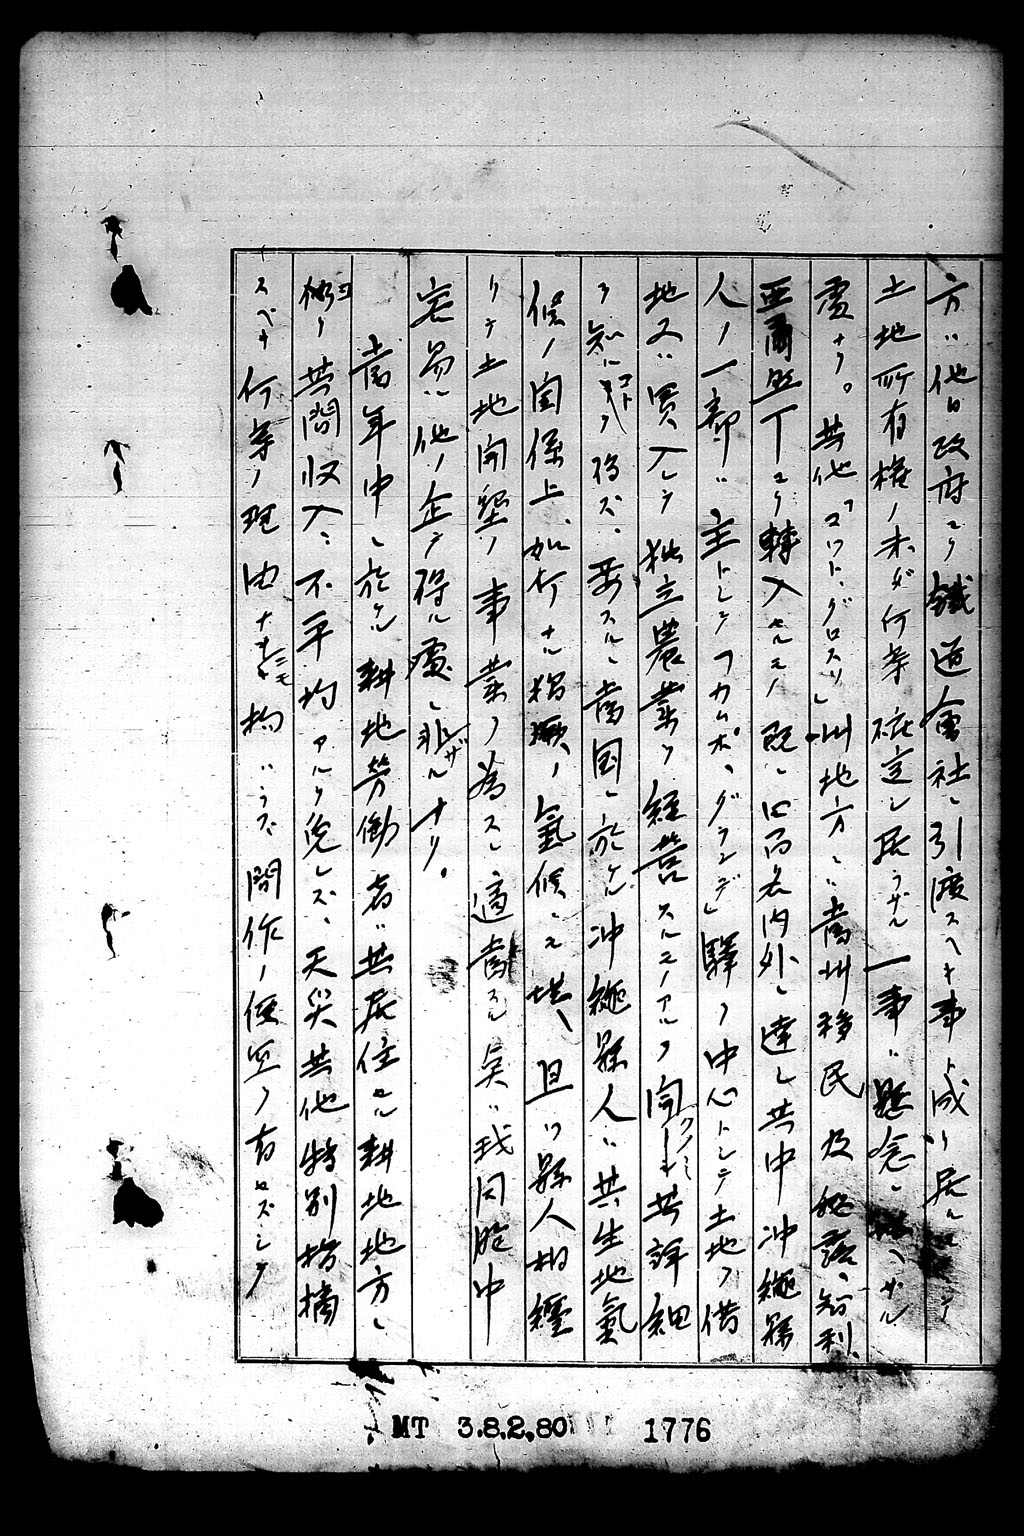 方ハ他日政府ヨリ鐵道會社ニ引渡スヘキ事ト成リ居ルヲ以テ
土地所有権ノ未ダ何等確定シ居ラザル一事ハ懸念ニ堪ヘザル
處ナリ。其他「マット、グロスソ」州地方ニハ當州移民及秘露、智利、
亜爾然丁ヨリ轉入セルモノ既ニ四百名内外ニ達シ其中沖縄縣
人ノ一部ハ主トシテ「カムポ、グランデ」驛ヲ中心トシテ土地ヲ借
地又ハ買入レテ独立農業ヲ経営スルモノアルヲ聞クノミ其詳細
ヲ知ルコトヲ得ズ、要スルニ當国ニ於ケル沖縄縣人ハ其生地氣
候ノ関係上、如何ナル猖獗ノ氣候ニモ堪ヘ、且ツ縣人相纒
リテ土地開墾ノ事業ヲ為スニ適當ナル矣ハ我同胞中
容易ニ他ノ企テ得ル處ニ非ザルナリ。
當年中ニ於ケル耕地労働者ハ其居住セル耕地地方ニ
依リ其間収入ニ不平均アルヲ免レズ、天災其他特別指摘
スベキ何等ノ理由ナキニモ拘ハラズ間作ノ便宜ヲ有セズシテ
MT 3.8.2.80 1776